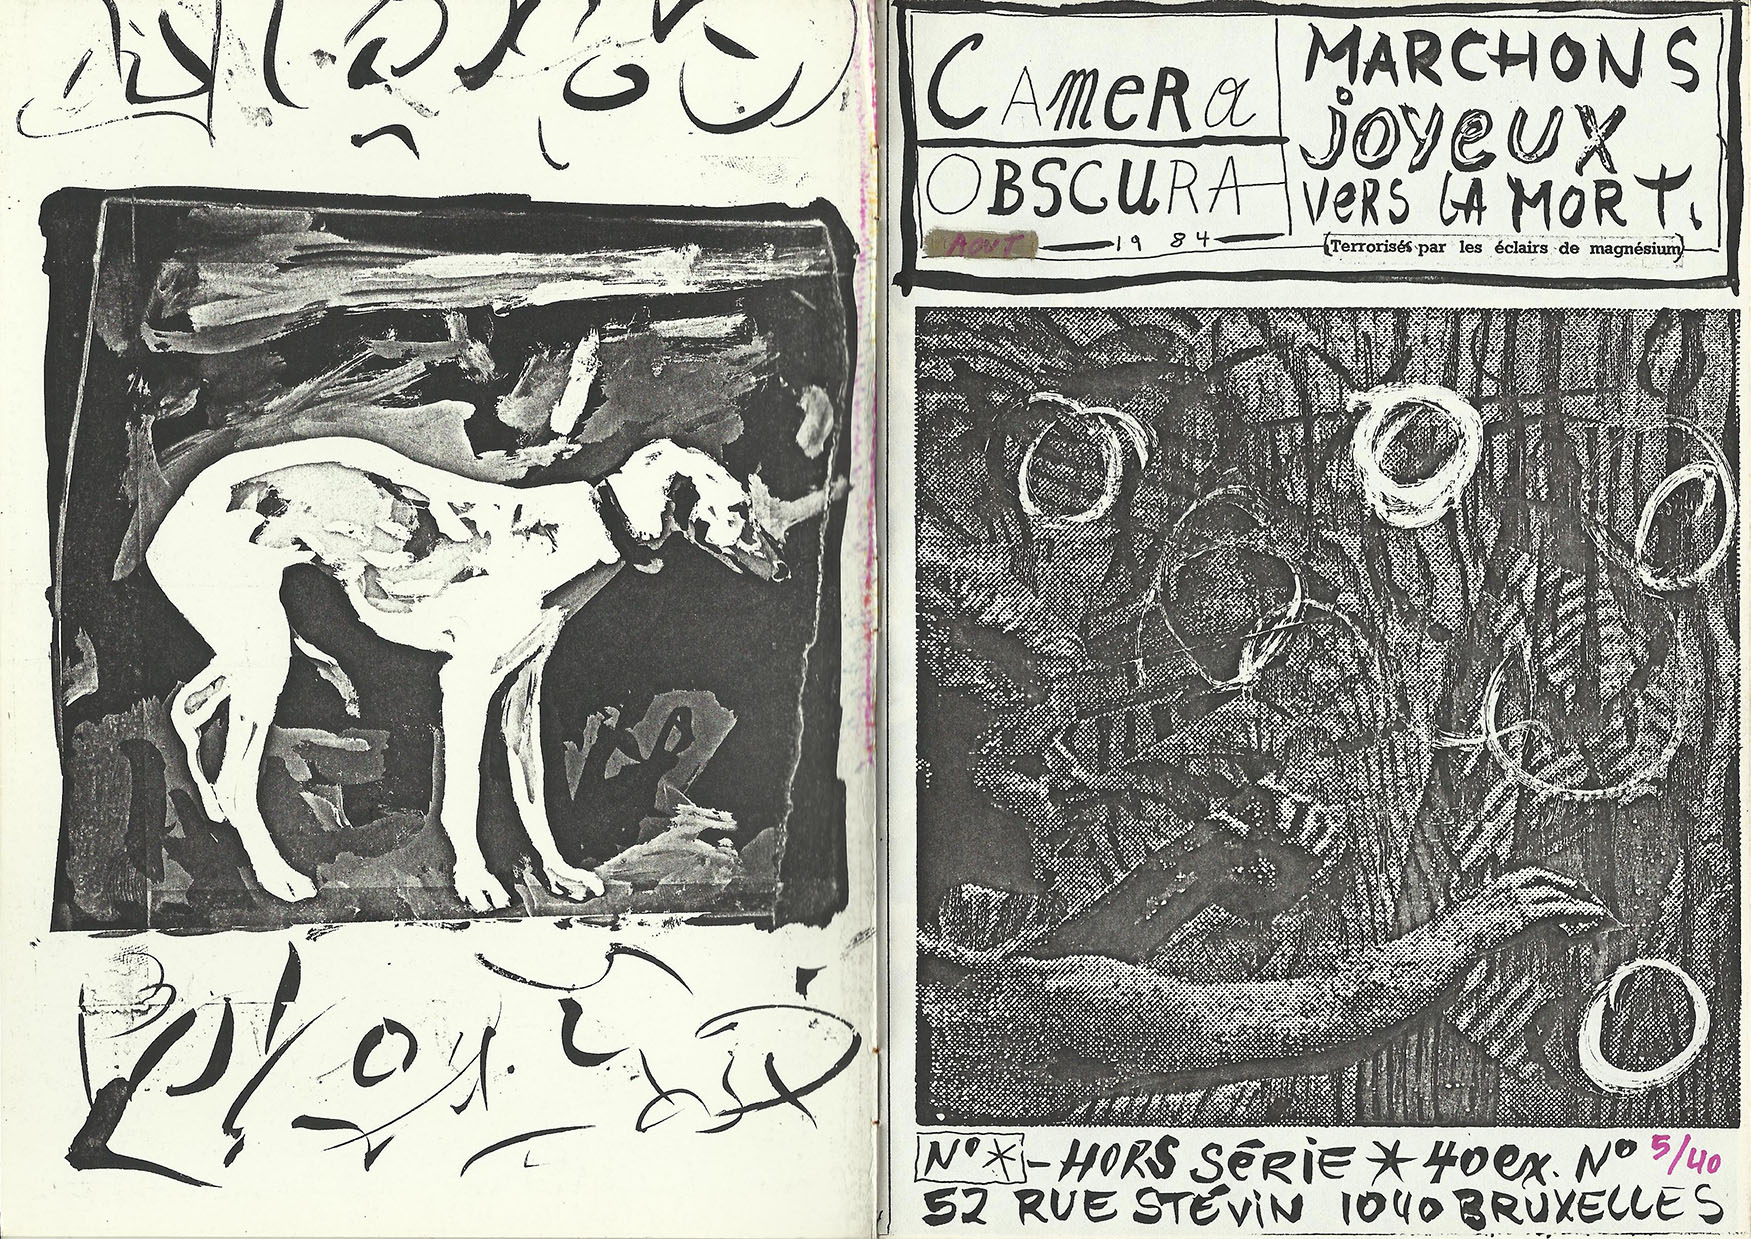 CAMERA
OBSCURA
AOUT 1984
MARCHONS
joyeux
VERS LA MORT.
(Terrorisés par les éclairs de magnésium)
N°* - HORS SÉRIE * 40 ex. N° 5/40
52 RUE STÉVIN 1040 BRUXELLES